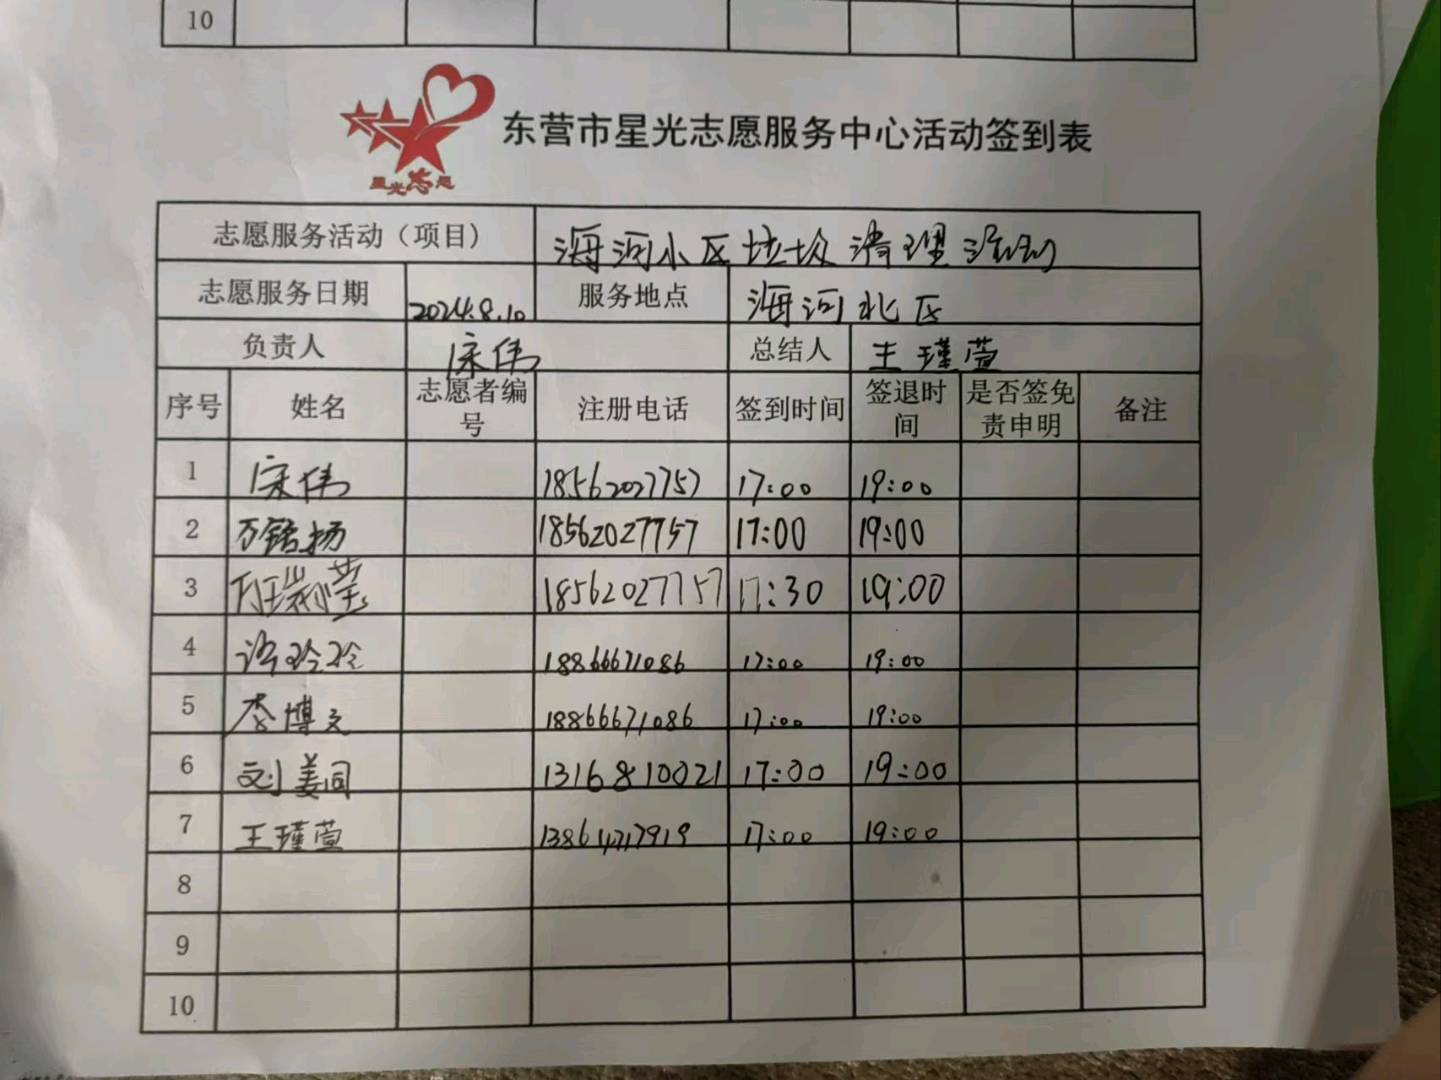 10
星光志愿
东营市星光志愿服务中心活动签到表
志愿服务活动（项目） 海河小区垃圾清理活动
志愿服务日期 2024.8.10 服务地点 海河北区
负责人 宋伟 总结人 王瑾萱
序号 姓名 志愿者编号 注册电话 签到时间 签退时间 是否签免责申明 备注
1 宋伟 18562027757 17:00 19:00
2 万铭扬 18562027757 17:00 19:00
3 18562027757 17:30 19:00
4 许玲玲 18866671086 17:00 19:00
5 李博文 18866671086 17:00 19:00
6 刘姜同 1316810021 17:00 19:00
7 王瑾萱 17:00 19:00
8
9
10